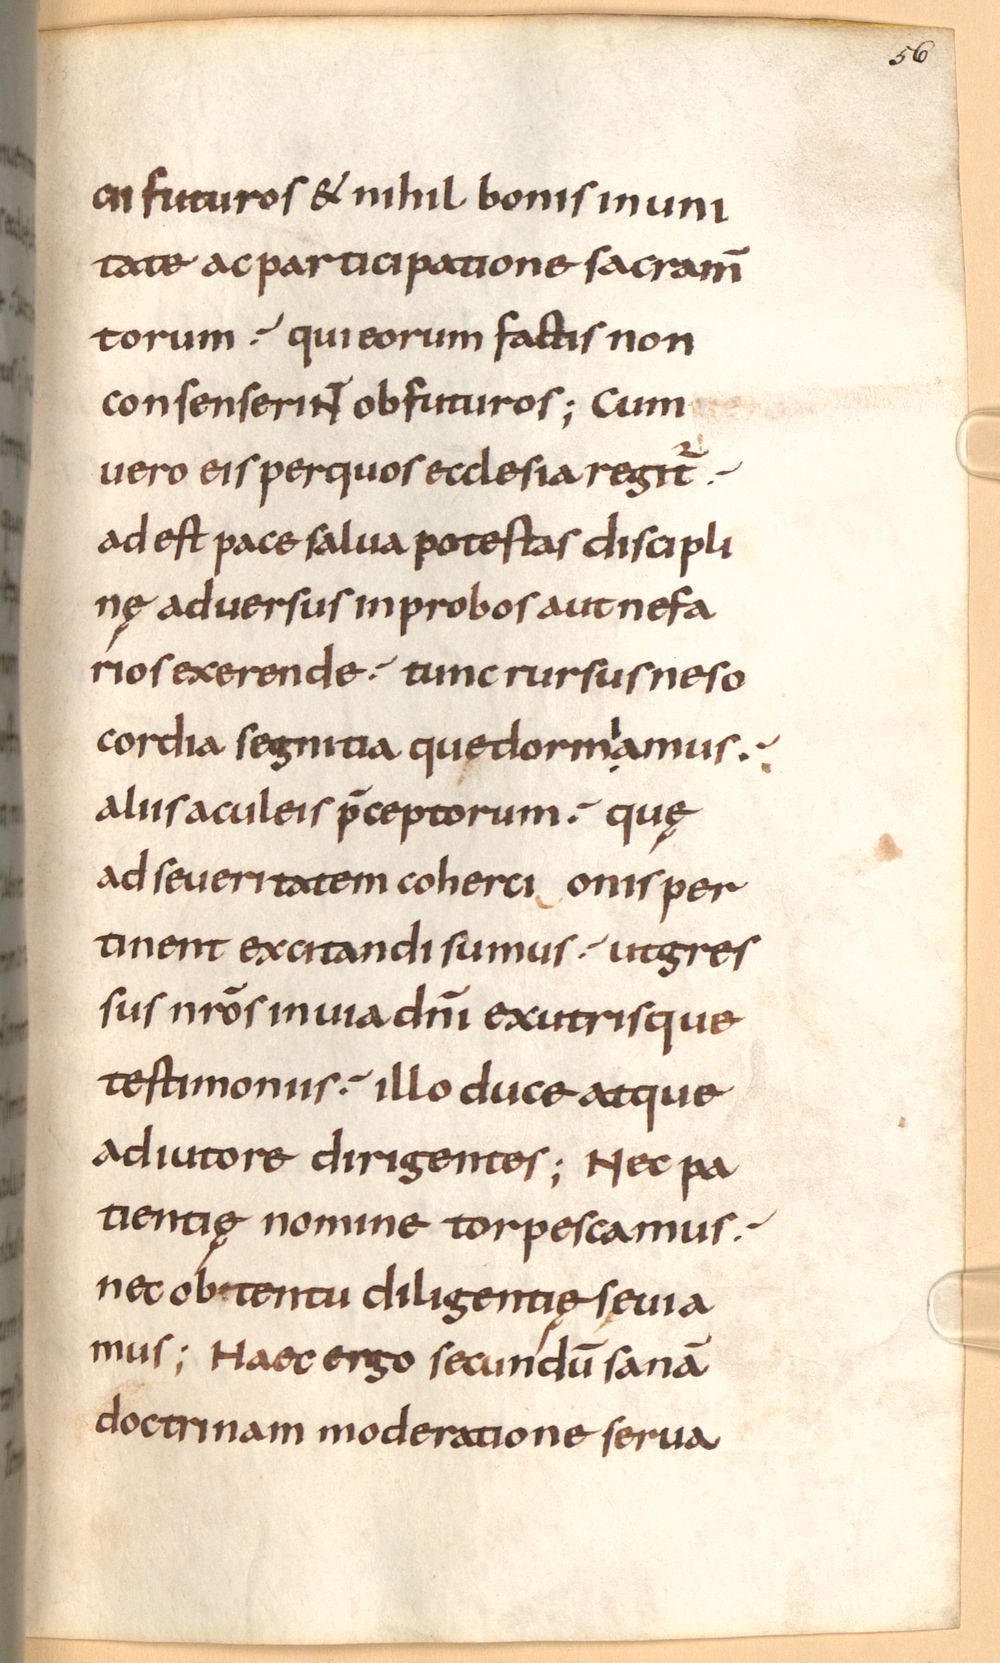 56
cii futuros & nihil bonis in uni
tate ac participatione sacram̄
torum qui eorum factis non
consenserin̄t obfuturos; Cum
uero eis per quos ecclesia regit᷑
adest pace salua potestas discipli
nę aduersus inprobos aut nefa
rios exerende tunc rursus ne so
cordia segnitia quę dormiamus
aliis aculeis p̄ceptorum quę
ad seueritatem coherci onis per
tinent excitandi sumus ut gres
sus nr̄os in uia dn̄i ex utrisque
testimoniis illo duce atque
adiutore dirigentes; Nec pa
tientię nomine torpescamus
nec obtentu diligentię sęuia
mus; Haec ergo secundū sanā
doctrinam moderatione serua